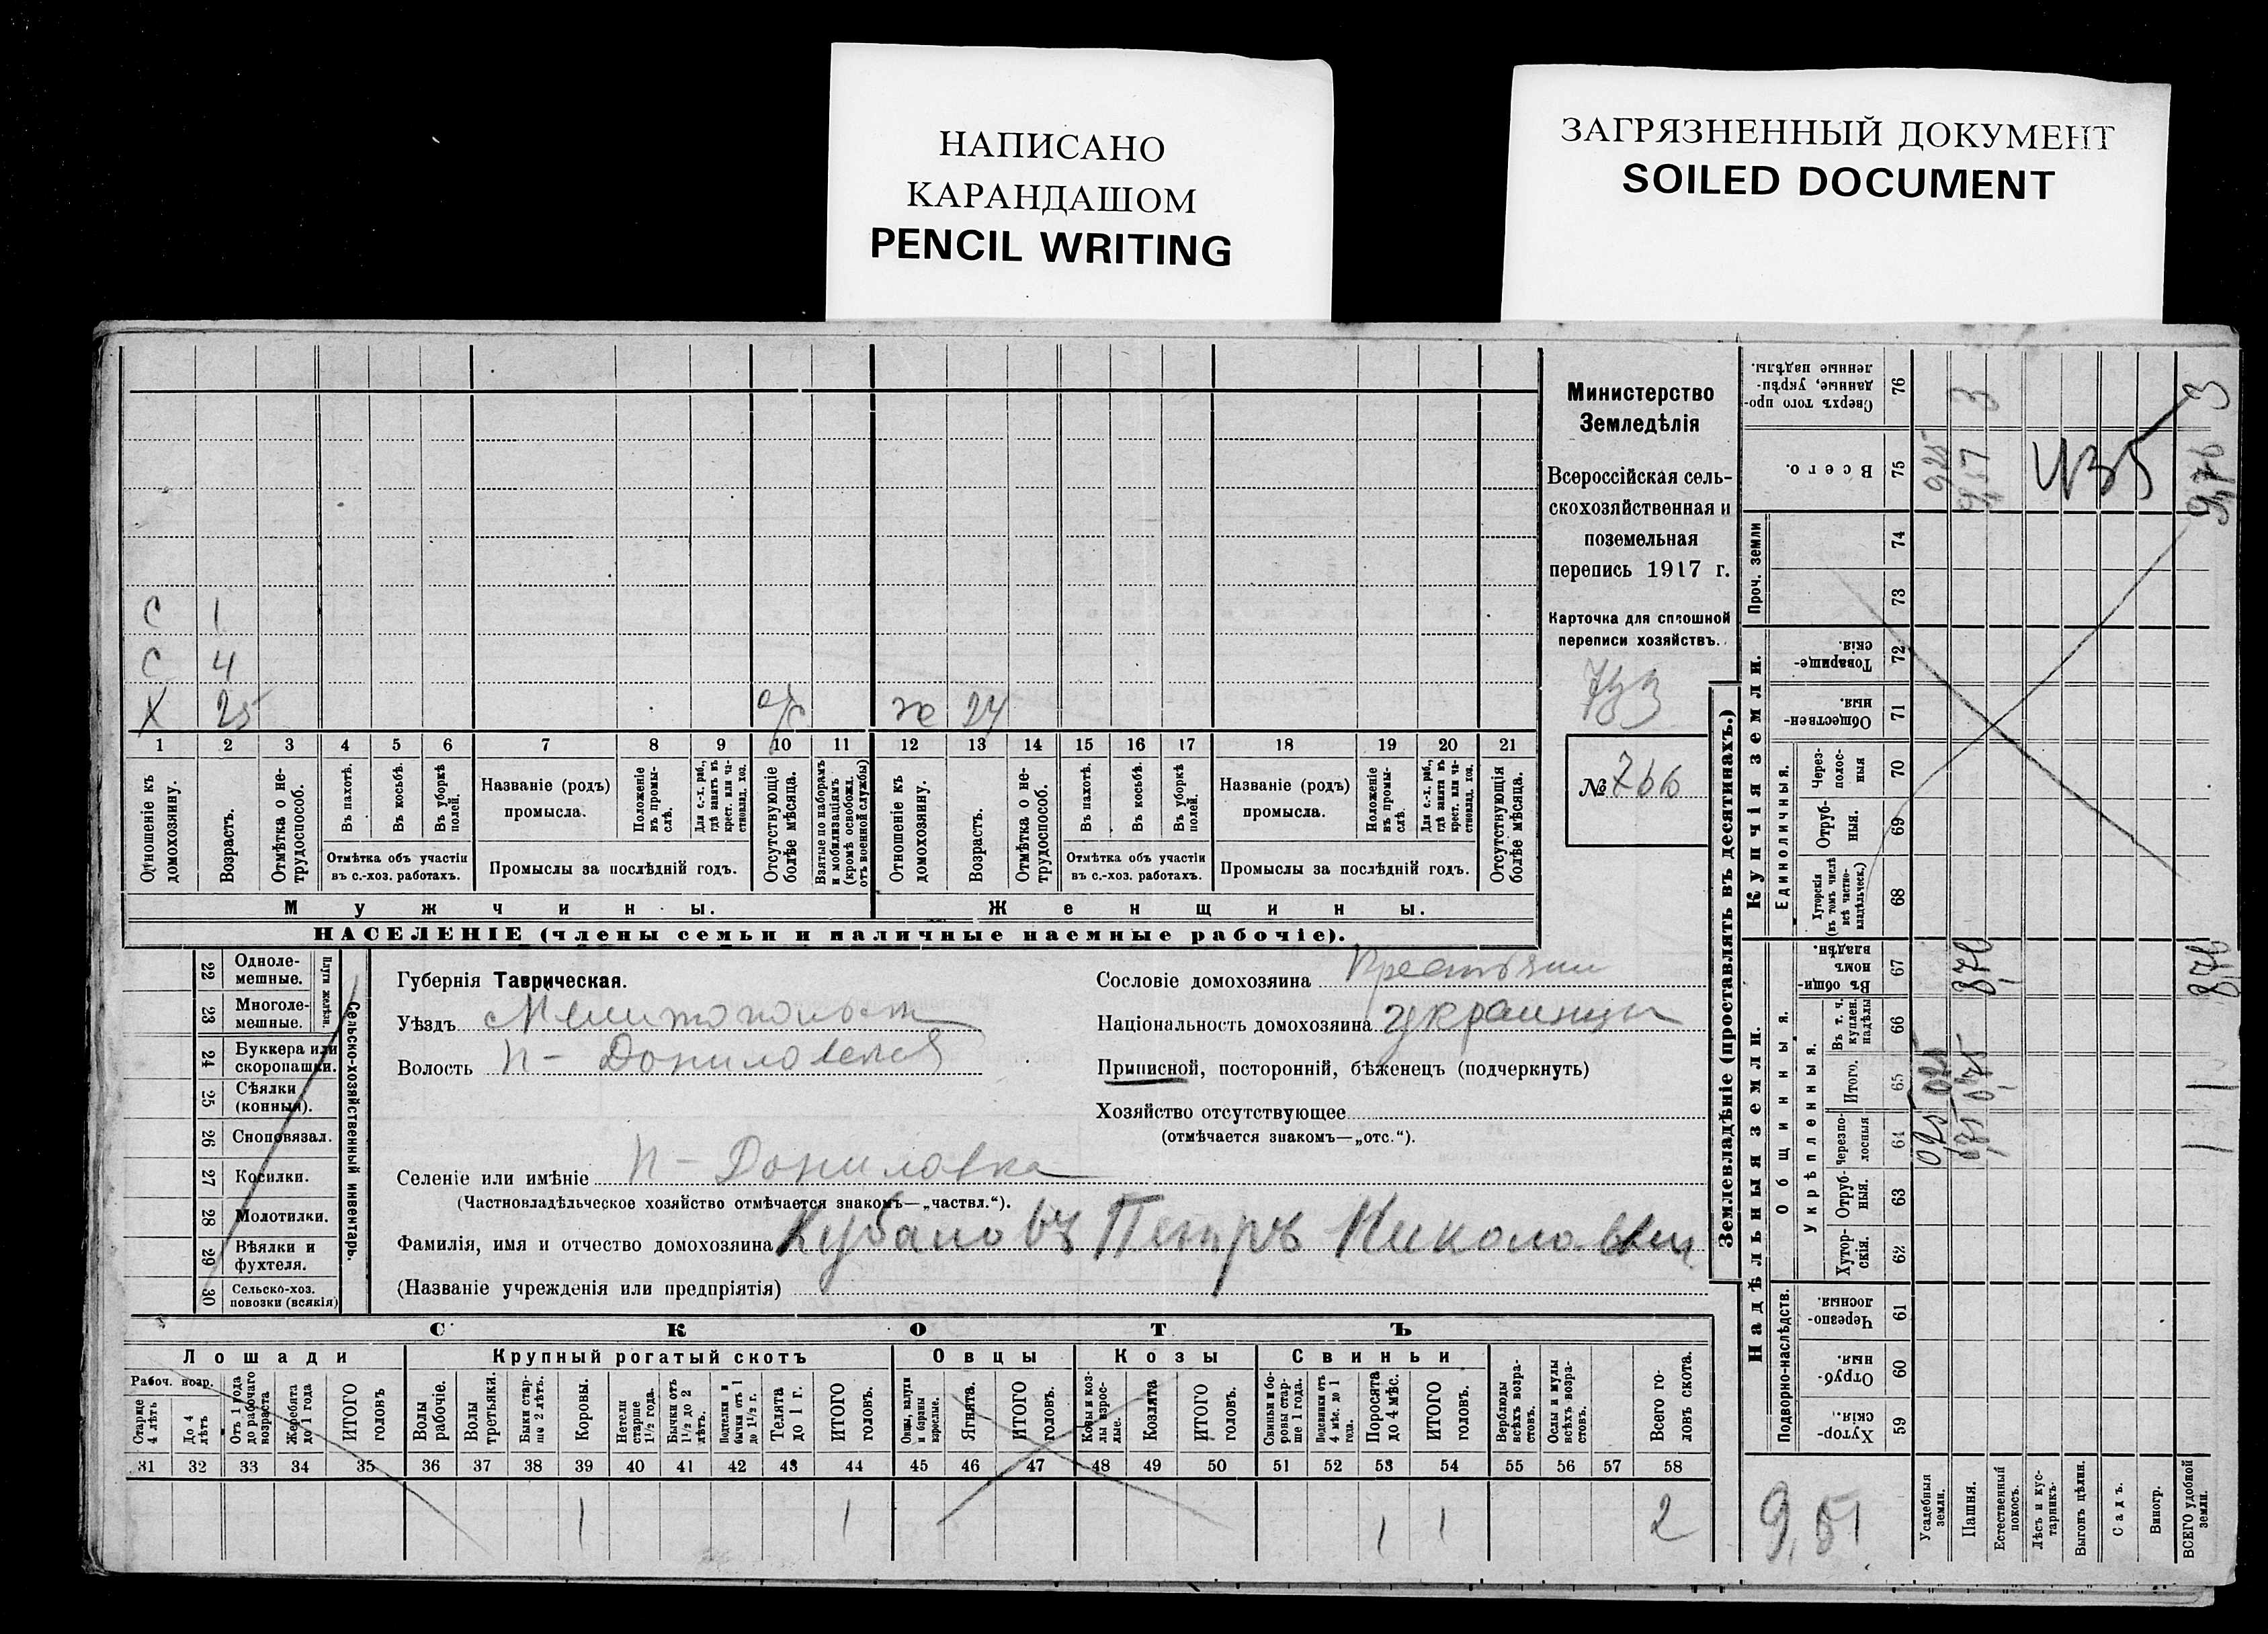 НАПИСАНО
КАРАНДАШОМ
PENCIL WRITING
ЗАГРЯЗНЕННЫЙ ДОКУМЕНТ
SOILED DOCUMENT
С 1
С 4
Х 25
ж 24
1 2 3 4 5 6 7 8 9 10 11 12 13 14 15 16 17 18 19 20 21
Отношеніе къ домохозяину.
Возрастъ.
Отмѣтка о не-трудоспособ.
Въ пахотѣ.
Въ косьбѣ.
Въ уборкѣ полей.
Отмѣтка объ участіи
въ с.-хоз. работахъ.
Названіе (родъ)
промысла.
Положеніе въ промы-слѣ.
Для с.-х. раб., гдѣ занятъ въ крест. или ча-стновлад. хоз.
Промыслы за послѣдній годъ.
Отсутствующіе болѣе мѣсяца.
Взятые по наборамъ и мобилизаціямъ (кромѣ освобожд. отъ военной службы)
Отношеніе къ домохозяину.
Возрастъ.
Отмѣтка о не-трудоспособ.
Въ пахотѣ.
Въ косьбѣ.
Въ уборкѣ полей.
Отмѣтка объ участіи
въ с.-хоз. работахъ.
Названіе (родъ)
промысла.
Положеніе въ промы-слѣ.
Для с.-х. раб., гдѣ занятъ въ крест. или ча-стновлад. хоз.
Промыслы за послѣдній годъ.
Отсутствующія болѣе мѣсяца.
Мужчины.
Женщины.
НАСЕЛЕНІЕ (члены семьи и наличные наемные рабочіе).
Министерство
Земледѣлія
Всероссійская сель-
скохозяйственная и
поземельная
перепись 1917 г.
Карточка для сплошной
переписи хозяйствъ.
733
№ 766
22 Одноле-мешные.
23 Многоле-мешные.
Плуги желѣзн.
24 Буккера или скоропашки.
25 Сѣялки (конныя).
26 Сноповязал.
27 Косилки.
28 Молотилки.
29 Вѣялки и фухтеля.
30 Сельско-хоз. повозки (всякія)
Сельско-хозяйственный инвентарь.
Губернія Таврическая.
Уѣздъ
Волость
Селеніе или имѣніе
(Частновладѣльческое хозяйство отмѣчается знакомъ—„частвл.“).
Фамилія, имя и отчество домохозяина Кубаловъ Петръ
(Названіе учрежденія или предпріятія)
Сословіе домохозяина
Національность домохозяина украинцы
Приписной, посторонній, бѣженецъ (подчеркнуть)
Хозяйство отсутствующее
(отмѣчается знакомъ—„отс.“).
СКОТЪ
Лошади
Крупный рогатый скотъ
Овцы
Козы
Свиньи
Рабоч. возр.
Старше 4 лѣтъ
До 4 лѣтъ
Отъ 1 года до рабочаго возраста
Жеребята до 1 года
ИТОГО головъ
Волы рабочіе.
Волы третьяки.
Быки стар-ше 2 лѣтъ.
Коровы.
Нетели старше 1½ года.
Бычки отъ 1½ до 2 лѣтъ.
Подтелки и бычки отъ 1 до 1½ г.
Телята до 1 г.
ИТОГО головъ.
Овцы, валухи и бараны взрослые.
Ягнята.
ИТОГО головъ.
Козы и коз-лы взрос-лые.
Козлята
ИТОГО головъ.
Свиньи и бо-ровы стар-ше 1 года.
Подсвинки отъ 4 мѣс. до 1 года.
Поросята до 4 мѣс.
ИТОГО головъ.
Верблюды всѣхъ возра-стовъ.
Ослы и мулы всѣхъ возра-стовъ.
Всего го-ловъ скота.
31 32 33 34 35 36 37 38 39 40 41 42 43 44 45 46 47 48 49 50 51 52 53 54 55 56 57 58
1 1 1 1 2
Землевладѣніе (проставлять въ десятинахъ.)
Надѣльныя земли.
Купчія земли.
Проч. земли
Подворно-наслѣдств.
Общинныя.
Укрѣпленныя.
Единоличныя.
Сверхъ того про-данные, укрѣп-ленные надѣлы. 76
Всего. 75
74
73
Товарище-скія. 72
Обществен-ныя. 71
Через-полос-ныя 70
Отруб-ныя. 69
Хуторскія (въ томъ числѣ всѣ частно-владѣльческ.) 68
Въ общин-номъ владѣн. 67
Въ т. ч. куплен. надѣлы 66
Итого. 65
Черезпо-лосныя 64
Отруб-ныя. 63
Хутор-скія. 62
Черезпо-лосныя 61
Отруб-ныя. 60
Хутор-скія. 59
Усадебныя земли.
Пашня.
Естественный покосъ.
Лѣсъ и кус-тарникъ.
Выгонъ цѣлин.
Садъ.
Виногр.
ВСЕГО удобной земли.
3
435
9,76 3
8,76
8,76